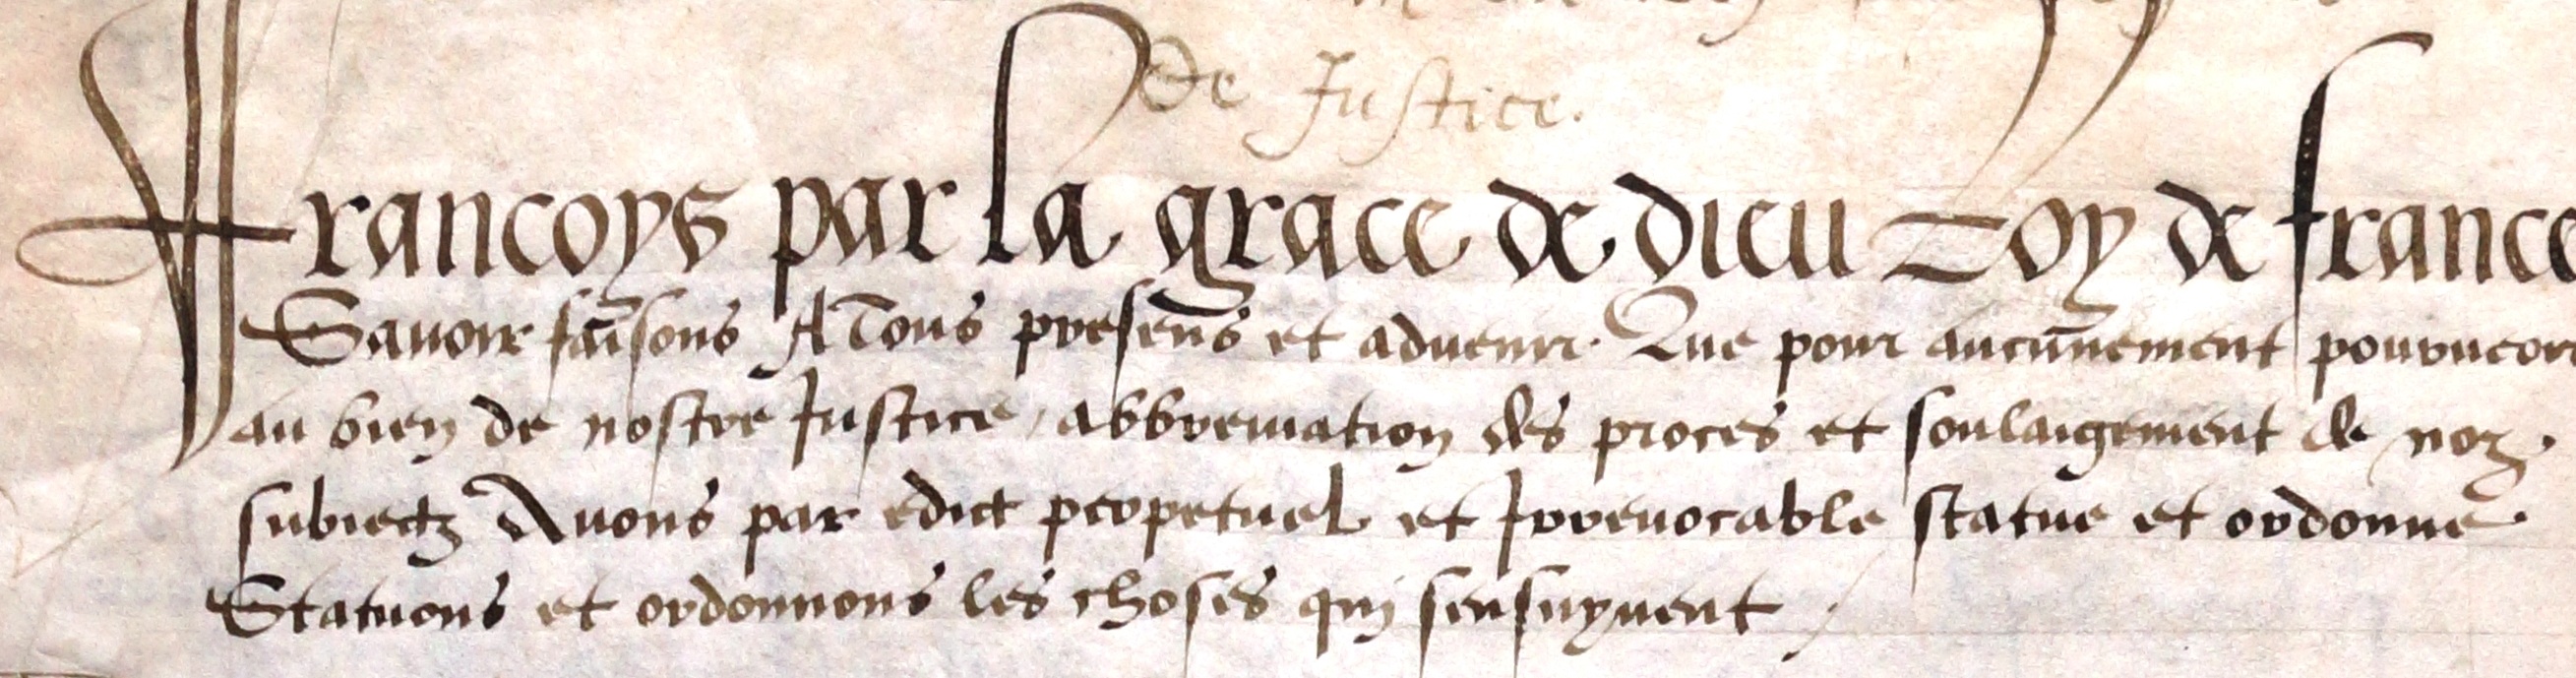 de Justice.
Francoys par la grace de dieu Roy de france
Savoir faisons A Tous presens et advenir. Que pour aucunement pourveoir
au bien de nostre Justice, abbreviation des proces et soulaigement de noz
subiectz Avons par edict perpetuel et Irrevocable statue et ordonne
Statuons et ordonnons les choses qui sensuyvent